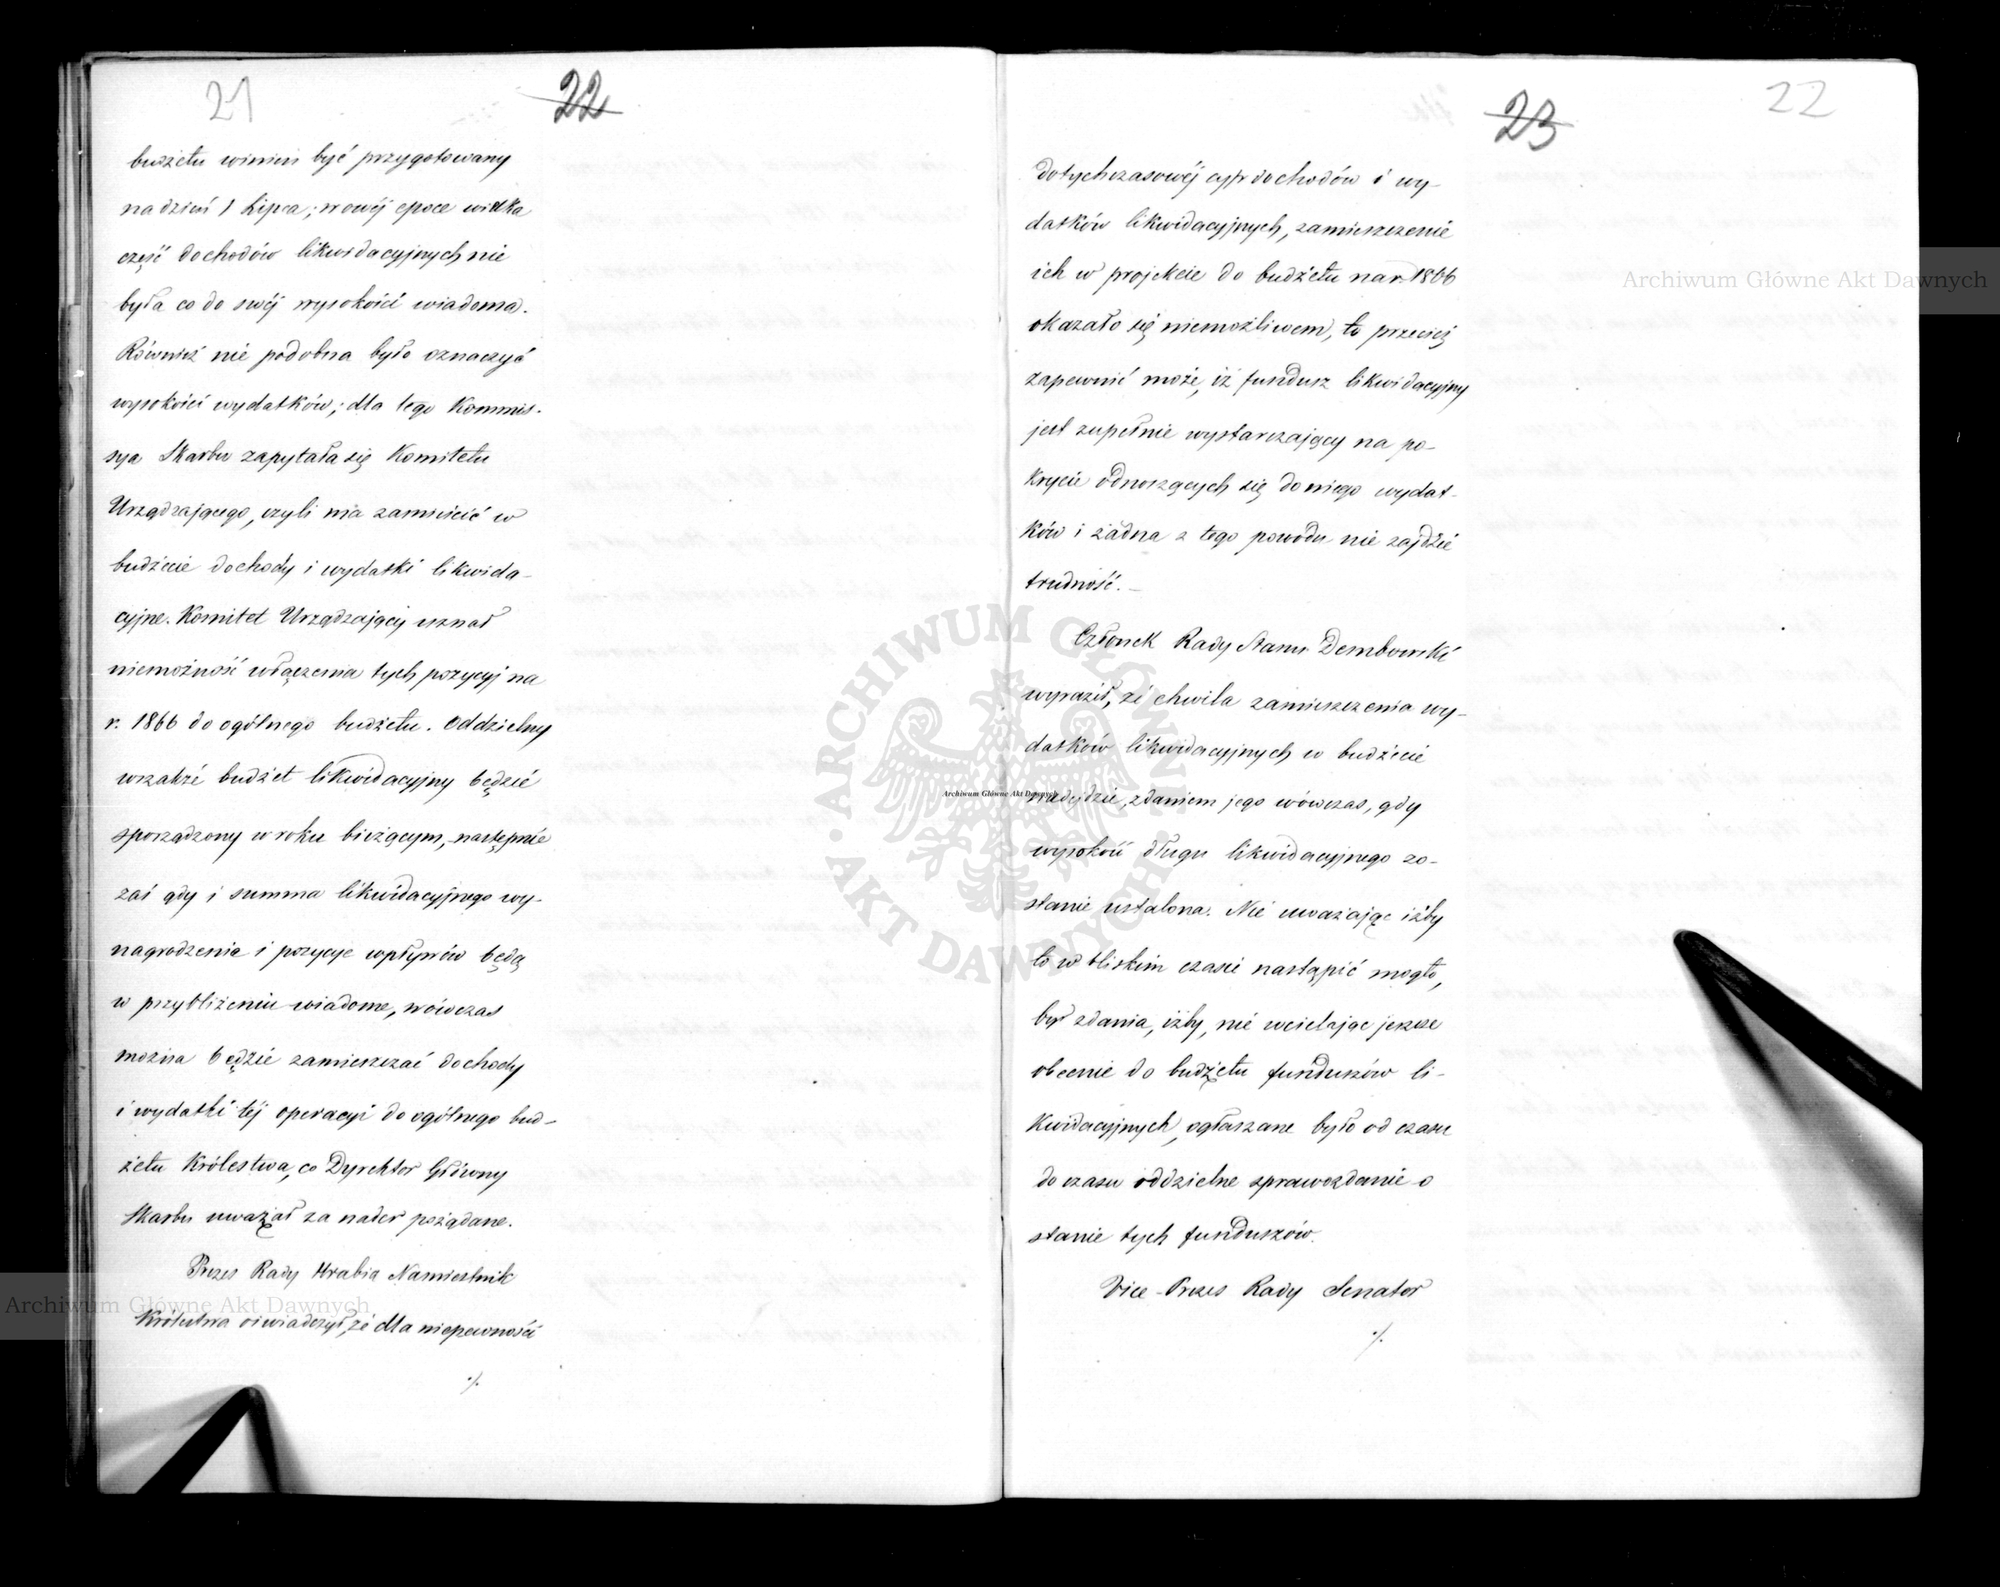 21
22
budżetu winien być przygotowany
na dzień 1 Lipca; w owéj epoce wielka
część dochodów likwidacyjnych nie
była co do swéj wysokości wiadoma.
Również nie podobna było oznaczyć
wysokości wydatków; dla tego Kommis-
sya Skarbu zapytała się Komitetu
Urządzającego, czyli ma zamieścić w
budżecie dochody i wydatki likwida-
cyjne. Komitet Urządzający uznał
niemożność włączenia tych pozycyj na
r. 1866 do ogólnego budżetu. Oddzielny
wszakże budżet likwidacyjny będzie
sporządzony w roku bieżącym, następnie
zaś gdy i summa likwidacyjnego wy-
nagrodzenia i pozycye wpływów będą
w przybliżeniu wiadome, wówczas
można będzie zamieszczać dochody
i wydatki téj operacyi do ogólnego bud-
żetu Królestwa, co Dyrektor Główny
Skarbu uważał za nader pożądane.
Prezes Rady Hrabia Namiestnik
Królestwa oświadczył, że dla niepewności
./.
23
22
dotychczasowéj cyfr dochodów i wy-
datków likwidacyjnych, zamieszczenie
ich w projekcie do budżetu na r. 1866
okazało się niemożliwem, to przecież
zapewnić może, iż fundusz likwidacyjny
jest zupełnie wystarczający na po-
krycie odnoszących się do niego wydat-
ków i żadna z tego powodu nie zajdzie
trudność. –
Członek Rady Stanu Dembowski
wyraził, że chwila zamieszczenia wy-
datków likwidacyjnych w budżecie
nadejdzie, zdaniem jego wówczas, gdy
wysokość długu likwidacyjnego zo-
stanie ustalona. Nie uważając iżby
to w bliskim czasie nastąpić mogło,
był zdania, iżby, nie wcielając jeszcze
obecnie do budżetu funduszów li-
kwidacyjnych, ogłaszane było od czasu
do czasu oddzielne sprawozdanie o
stanie tych funduszów.
Vice-Prezes Rady Senator
./.
Archiwum Główne Akt Dawnych
Archiwum Główne Akt Dawnych
Archiwum Główne Akt Dawnych
ARCHIWUM GŁÓWNE AKT DAWNYCH